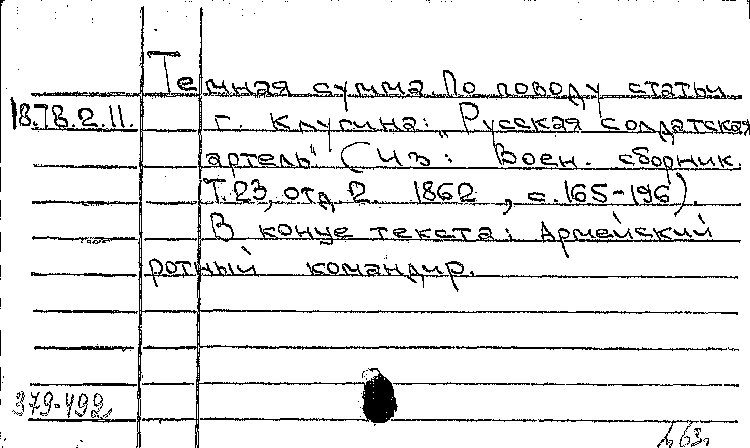 Темная сумма. По поводу статьи
18.78.2.11. г. Клугина: „Русская солдатская
артель" (Из: Воен. сборник.
Т.23, отд. 2. 1862, с.165-196).
В конце текста: Армейский
ротный командир.
379-492